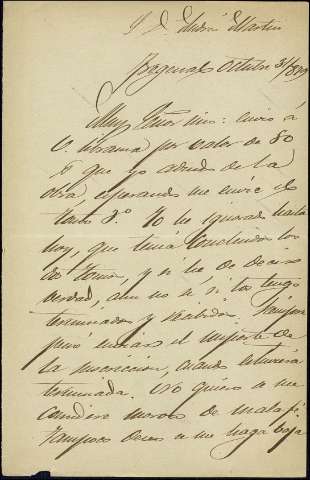 S. D. Andrés Martin
Octubre 31/899
Muy Señor mio: envio á
V. libranza por valor de 80
que yo adeudo de la
obra, esperando me envíe el
tomo 3º. Yo he ignorado hasta
hoy, que tenia concluidos los
dos tomos, y si he de decir
verdad, aun no sé si los tengo
terminados y recibidos. Siempre
pensé enviar el importe de
la suscricion, cuando estuviera
terminada. No quiero se me
considere moroso de mala fé.
Tampoco deseo se me haga baja